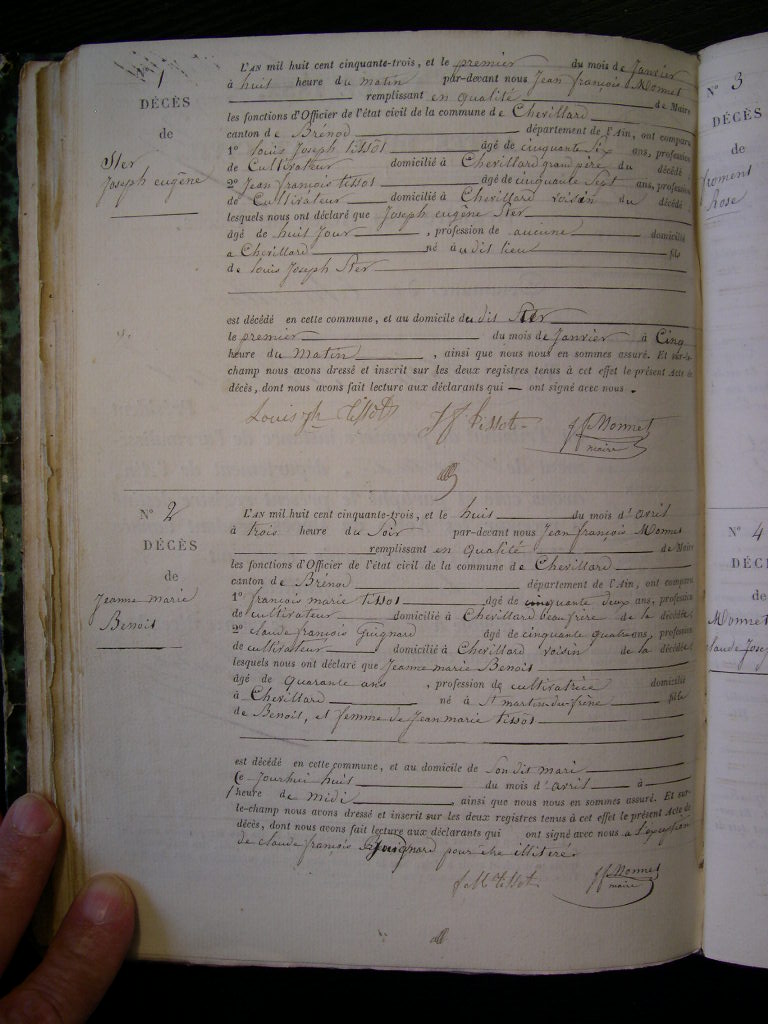 1
DÉCÈS
de
Ster
Joseph eugène
L'AN mil huit cent cinquante-trois, et le premier du mois de Janvier
à huit heure du matin par-devant nous Jean françois Monnet
remplissant en qualité de Maire
les fonctions d'Officier de l'état civil de la commune de Chevillard
canton de Brénod département de l'Ain, ont comparu
1º louis Joseph tissot âgé de cinquante six ans, profession
de Cultivateur domicilié à Chevillard grand père du décédé
2º Jean françois tissot âgé de cinquante sept ans, profession
de Cultivateur domicilié à Chevillard voisin du décédé
lesquels nous ont déclaré que Joseph eugène Ster
âgé de huit Jour, profession de aucune domicilié
a Chevillard né à udit lieu fils
de louis Joseph Ster
est décédé en cette commune, et au domicile dudit Ster
le premier du mois de Janvier à Cinq
heure du Matin, ainsi que nous nous en sommes assuré. Et sur-le-
champ nous avons dressé et inscrit sur les deux registres tenus à cet effet le présent Acte de
décès, dont nous avons fait lecture aux déclarants qui — ont signé avec nous.
Louis Jh tissot J f tissot J f Monnet
maire
Nº 2
DÉCÈS
de
Jeanne marie
Benoit
L'AN mil huit cent cinquante-trois, et le huit du mois d'avril
à trois heure du Soir par-devant nous Jean françois Monnet
remplissant en qualité de Maire
les fonctions d'Officier de l'état civil de la commune de Chevillard
canton de Brénod département de l'Ain, ont comparu
1º françois marie tissot âgé de cinquante deux ans, profession
de cultivateur domicilié à Chevillard beau frère de la décédée
2º claude françois Guignard âgé de cinquante quatre ans, profession
de cultivateur domicilié à Chevillard voisin de la décédée
lesquels nous ont déclaré que Jeanne marie Benoit
âgé de quarante ans, profession de cultivatrice domicilié
à Chevillard né à St martin-du-frêne fille
de Benoit, et femme de Jean marie tissot
est décédé en cette commune, et au domicile de Son dit mari
Ce Jourhui huit du mois d'avril à
1 heure de midi, ainsi que nous nous en sommes assuré. Et sur-
le-champ nous avons dressé et inscrit sur les deux registres tenus à cet effet le présent Acte de
décès, dont nous avons fait lecture aux déclarants qui ont signé avec nous a l'exception
de claude françois Guignard pour être illitiré
f M tissot J f Monnet
maire
Nº 3
DÉCÈS
de
froment
Rose
Nº 4
DÉC
de
Monnet
claude Josep